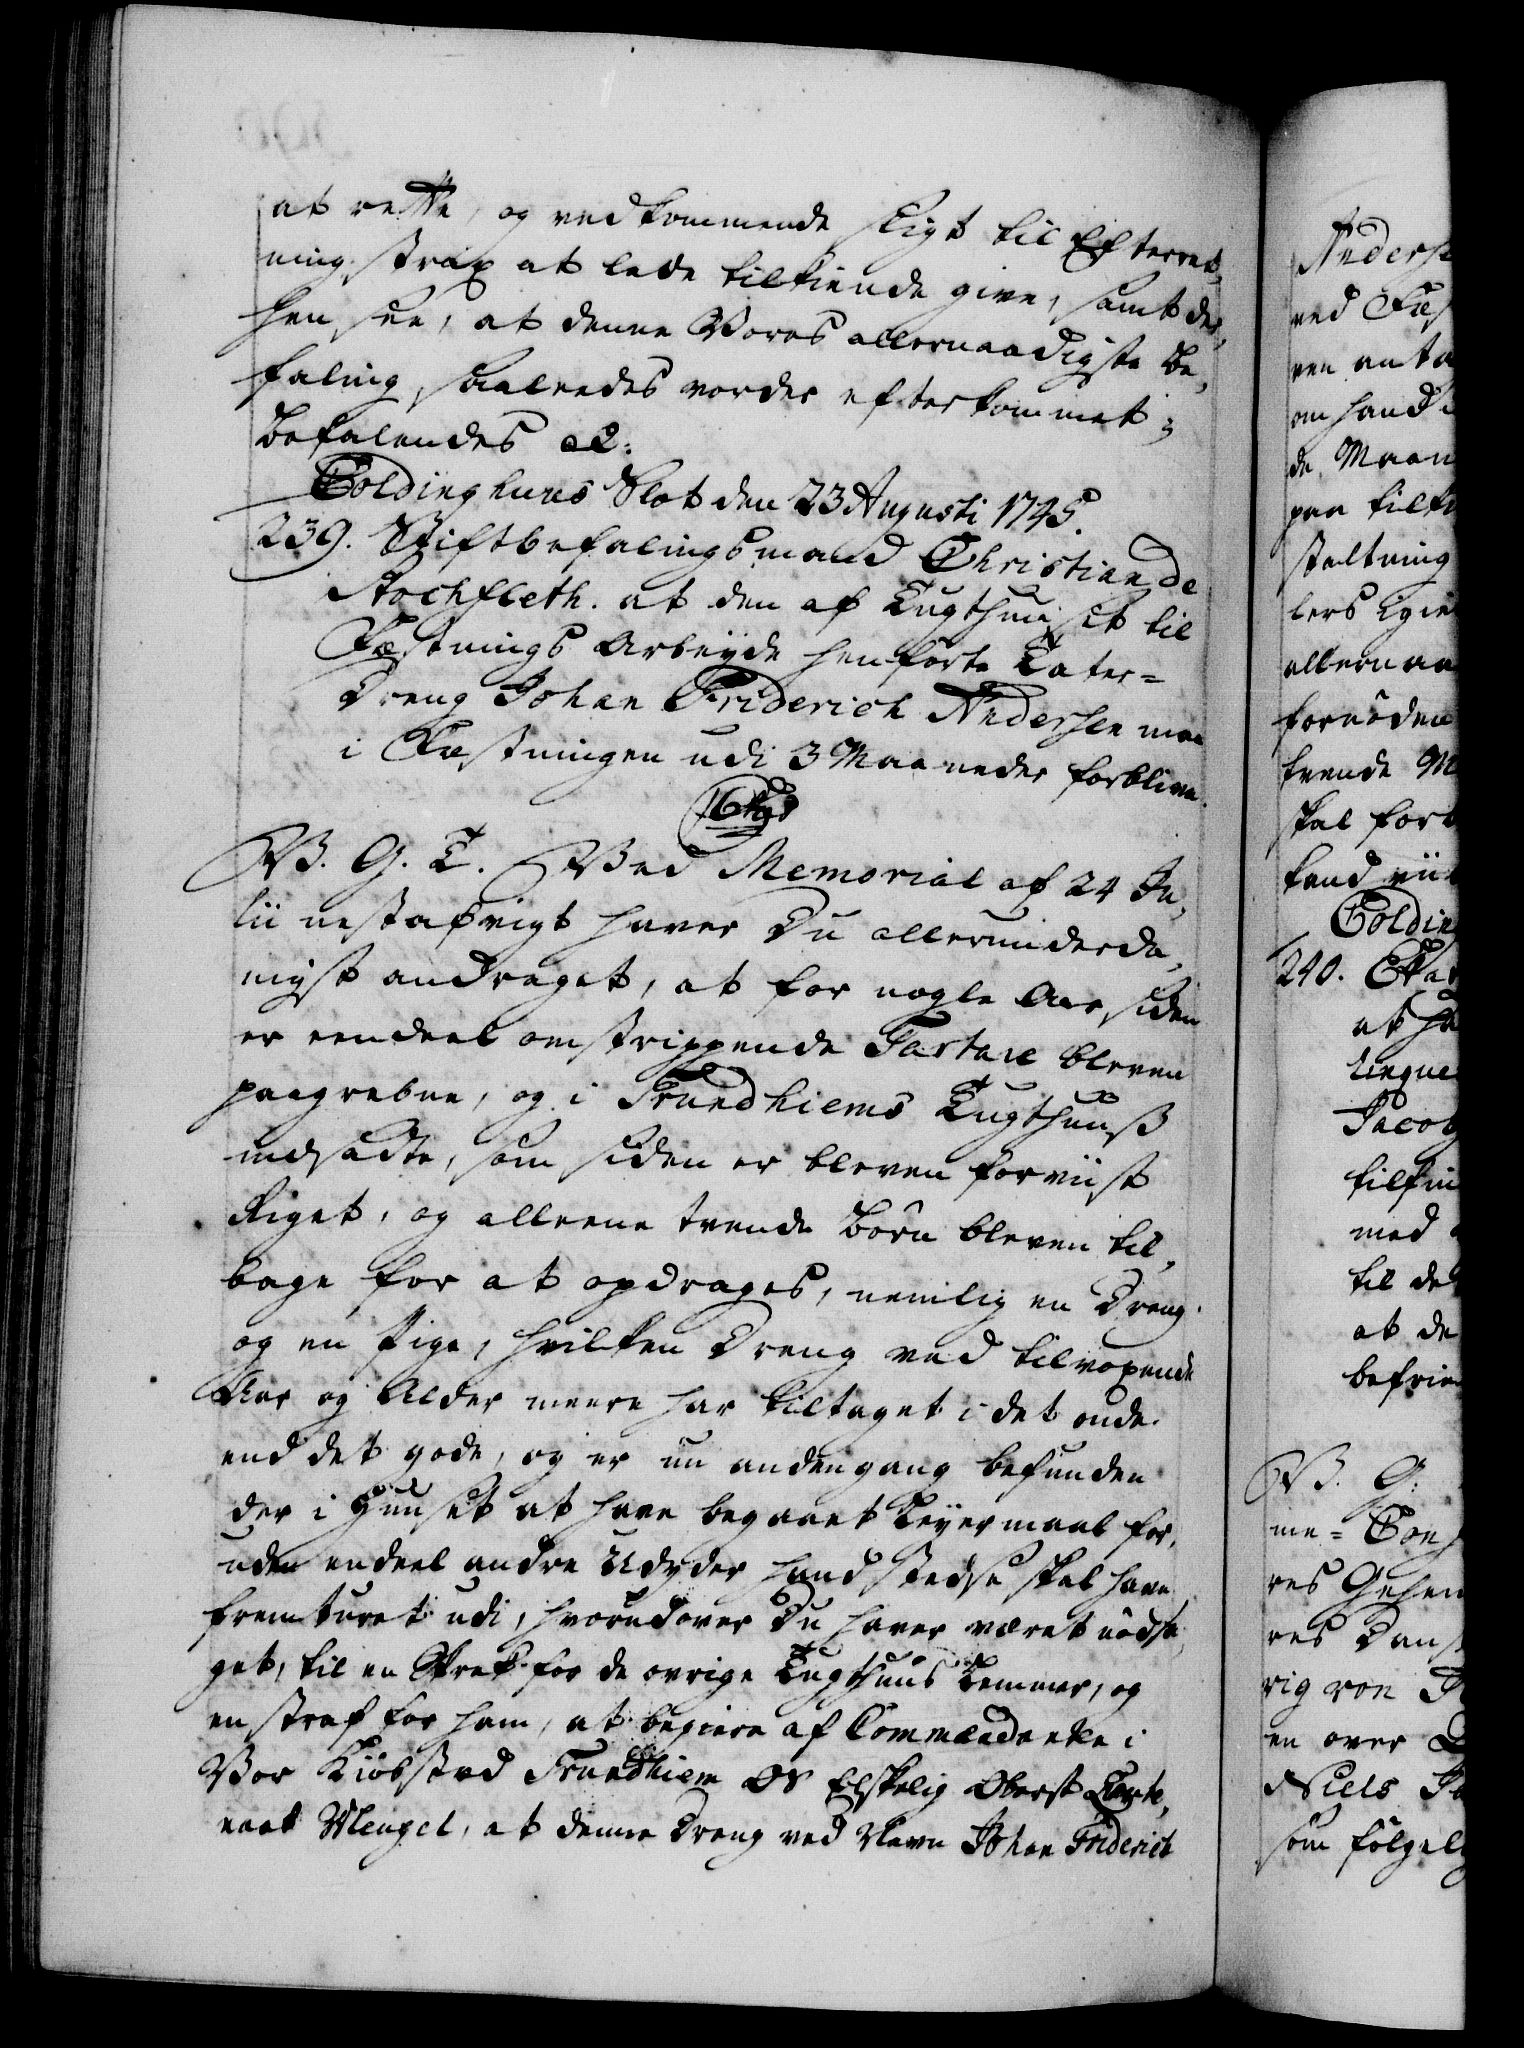 at rette, og vedkommende sligt til Efterret,
ning strax at lade tilkiende give, samt der,
hen see, at denne Vores allernaadigste Be,
faling, saaleedes vorder efterkommet;
Befalendes &:
Coldinghuus Slot den 23 Augusti 1745.
239. Stiftbefalingsmand Christian de
Stochfleth. at den af Tugthuuset til
Fæstnings Arbeyde henførte Tater=
Dreng Johan Friderich Andersen maa
i Fæstningen udi 3 Maaneder forblive.
C6tus
V. G. T. Ved Memorial af 24 Ju,
lii nestafvigt haver Du allerunderda,
nigst andraget, at for nogle Aar siden
er eendeel omstrippende Tartare bleven
paagrebne, og i Trundhiems Tugthuuss
indsadte, som siden er bleven forviist
Riget, og alleene tvende Børn bleven til,
bage for at opdrages, nemlig en Dreng
og en Pige, hvilken Dreng ved tilvoxende
Aar og Alder meere har tiltaget i det onde
end det gode, og er nu anden gang befunden
der i Huuset at have begaaet Leyermaal for,
uden endeel andre Udyder hand stedse skal have
fremturet udi, hvorudover Du haver været nødsa,
get, til en Skrek for de øvrige Tugthuus Lemmer, og
en straf for ham, at begiere af Commendanten i
Vor Kiøbsted Trundhiem OS Elskelig Oberst Lieute,
nant Mengel, at denne Dreng ved Navn Johan Friderich
Anderse
ved Fæs
ven anta
om hand
de Maan
paa tilfø
staltning
lers Igie
allernaa
fornøden
tvende M
skal forb
kand vii
Colding
240.
at ha
Jacob
tilfin
med
til de
at de
befrie
V. G.
me= Con
res Gehei
res Dans
rig von
en over
Niels
som følgel